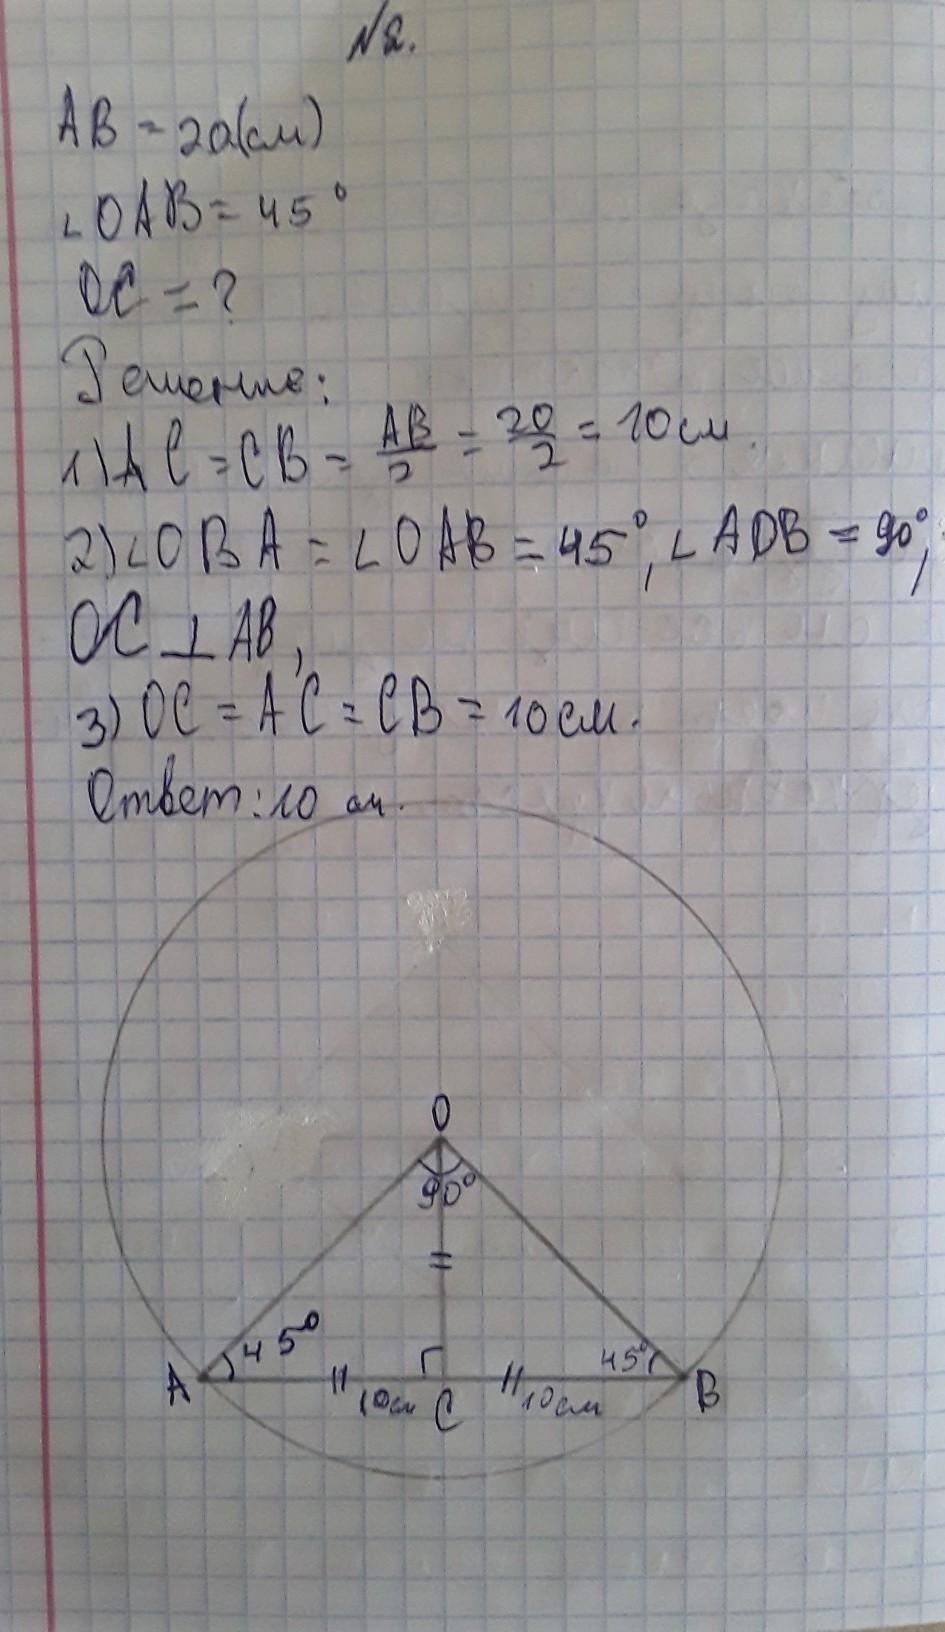 №2.
AB = 20(см)
∠OAB = 45°
OC = ?
Решение:
1) AC = CB = AB/2 = 20/2 = 10см.
2) ∠OBA = ∠OAB = 45°, ∠AOB = 90°,
OC ⊥ AB,
3) OC = AC = CB = 10см.
Ответ: 10 см.
O
90°
45°
45°
A
10см
C
10см
B